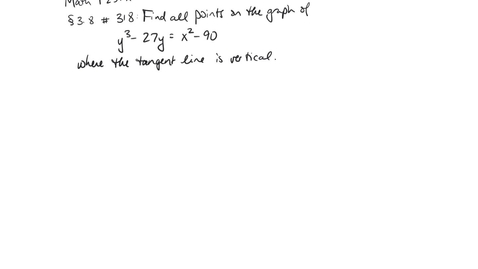 Math
§3.8 # 318: Find all points on the graph of
y³ - 27y = x² - 90
where the tangent line is vertical.